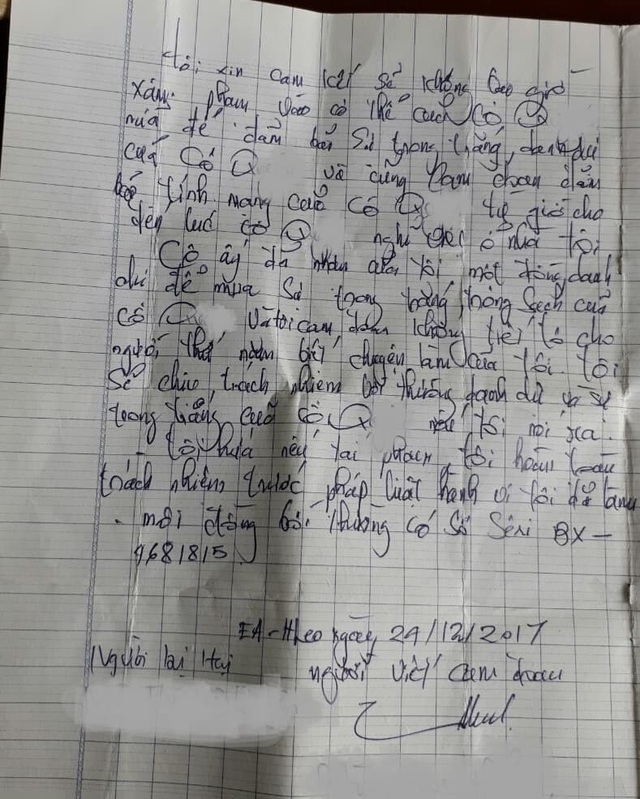 Tôi xin cam kết sẽ không bao giờ
xâm phạm vào cơ thể của cô Q
nữa để đảm bảo sự trong trắng, danh dự
của Cô Q và cũng cam đoan đảm
bảo tính mạng của Cô Q từ giờ cho
đến lúc cô Q nghỉ việc ở nhà tôi
Cô ấy đã nhận của tôi một đồng danh
dự để mua sự trong trắng, trong sạch của
cô Q và tôi cam đoan không tiết lộ cho
người thứ năm biết chuyện làm của tôi. Tôi
Sẽ chịu trách nhiệm bồi thường danh dự và sự
trong trắng của cô Q nếu tôi nói ra.
- Tôi hứa nếu tái phạm tôi hoàn toàn
trách nhiệm trước pháp luật hành vi tôi đã làm
. một đồng bồi thường có số Sêri BX –
9681815
EA-Hleo ngày 29/12/2017
Người bị hại người viết cam đoan